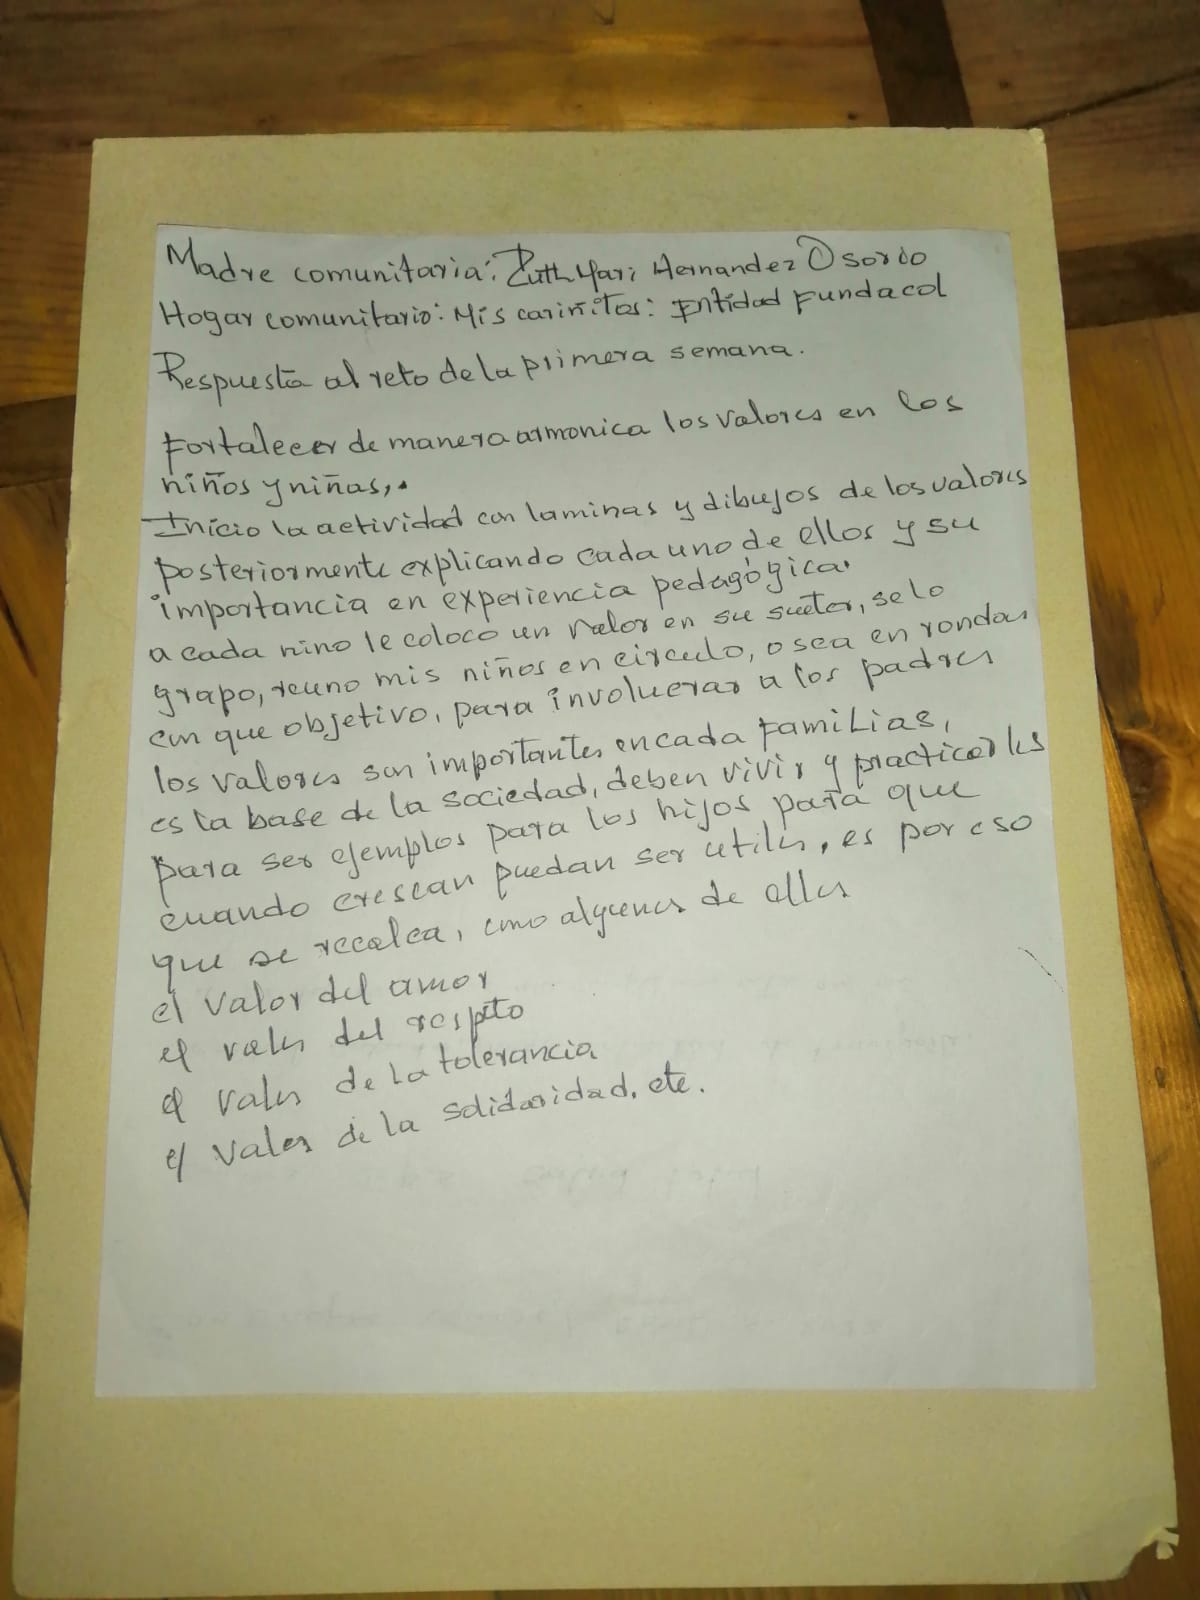 Madre comunitaria: Ruth Mari Hernandez Osorio
Hogar comunitario: Mis cariñitos: Entidad Fundacol
Respuesta al reto de la primera semana.
Fortalecer de manera armonica los valores en los
niños y niñas,.
Inicio la actividad con laminas y dibujos de los valores
posteriormente explicando cada uno de ellos y su
importancia en experiencia pedagógica.
a cada nino le coloco un valor en su sueter, se lo
grapo, reuno mis niños en circulo, o sea en rondas
con que objetivo, para involucrar a los padres
los valores son importantes en cada familias,
es la base de la sociedad, deben vivir y practicarles
para ser ejemplos para los hijos para que
cuando crescan puedan ser utiles, es por eso
que se recalca, como algunos de ellos
el valor del amor
el valor del respeto
el valor de la tolerancia
el valor de la solidaridad, etc.